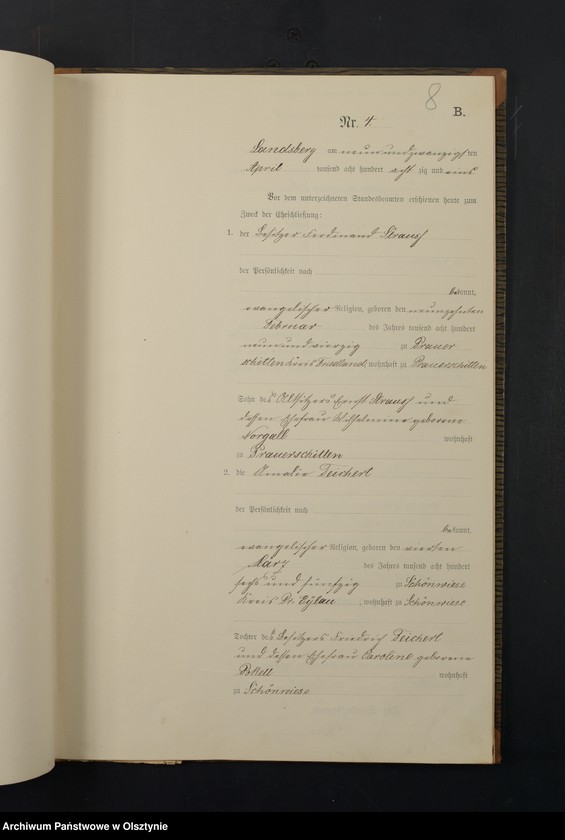 8
B.
Nr. 4
Landsberg am neunundzwanzigsten
April tausend acht hundert acht zig und eins
Vor dem unterzeichneten Standesbeamten erschienen heute zum
Zweck der Eheschließung:
1. der Besitzer Ferdinand Strauß
der Persönlichkeit nach
bekannt,
evangelischer Religion, geboren den neunzehnten
Februar des Jahres tausend acht hundert
neunundvierzig zu Prauer
schitten Kreis Friedland, wohnhaft zu Prauerschitten
Sohn des Altsitzers Ernst Strauß und
dessen Ehefrau Wilhelmine geborene
Norgall wohnhaft
zu Prauerschitten
2. die Amalie Teichert
der Persönlichkeit nach
bekannt,
evangelischer Religion, geboren den vierten
März des Jahres tausend acht hundert
sechs und fünfzig zu Schönwiese
Kreis Pr. Eylau, wohnhaft zu Schönwiese
Tochter des Besitzers Friedrich Teichert
und dessen Ehefrau Caroline geborene
wohnhaft
zu Schönwiese
Archiwum Państwowe w Olsztynie